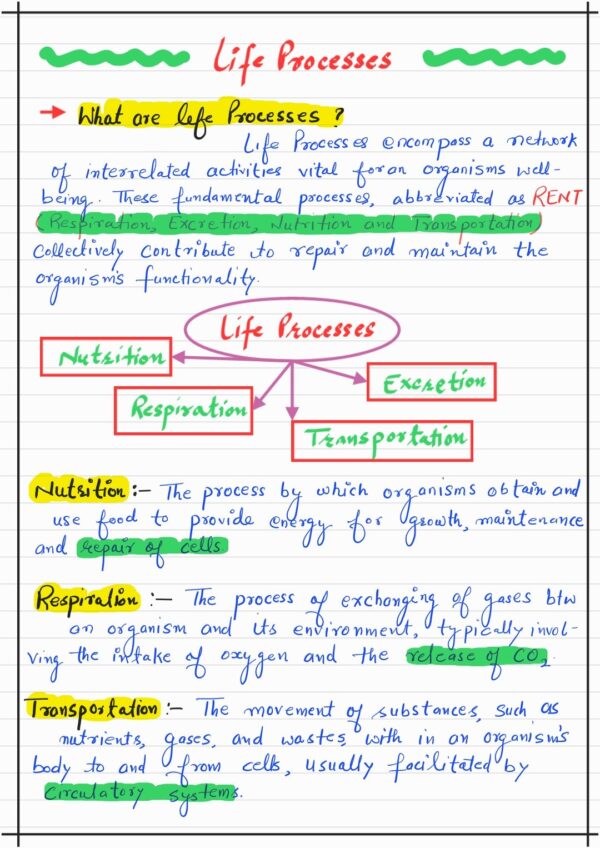 Life Processes
→ What are life Processes ?
Life Processes encompass a network
of interrelated activities vital for an organisms well-
being. These fundamental processes, abbreviated as RENT
(Respiration, Excretion, Nutrition and Transportation)
collectively contribute to repair and maintain the
organism's functionality.
Life Processes
Nutrition
Excretion
Respiration
Transportation
Nutrition :- The process by which organisms obtain and
use food to provide energy for growth, maintenance
and repair of cells
Respiration :- The process of exchanging of gases btw
an organism and its environment, typically invol-
ving the intake of oxygen and the release of CO₂.
Transportation :- The movement of substances, such as
nutrients, gases, and wastes, with in an organism's
body to and from cells, usually facilitated by
Circulatory systems.